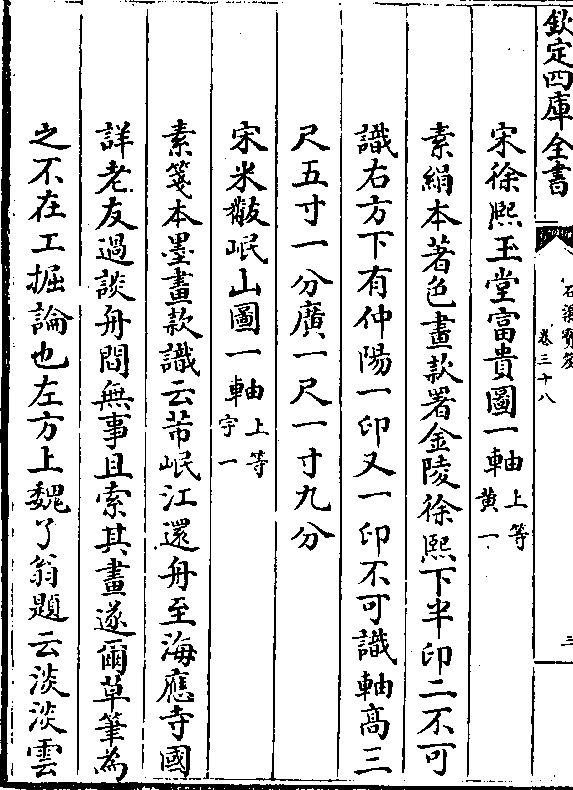 欽定四庫全書
石渠寶笈
卷三十八
三
宋徐熙玉堂富貴圖一軸上等黄一
素絹本著色畫款署金陵徐熙下半印二不可
識右方下有仲陽一印又一印不可識軸髙三
尺五寸一分廣一尺一寸九分
宋米黻岷山圖一軸上等宇一
素箋本墨畫款識云芾岷江還舟至海應寺國
詳老友過談舟間無事且索其畫遂爾草筆為
之不在工掘論也左方上魏了翁題云淡淡雲